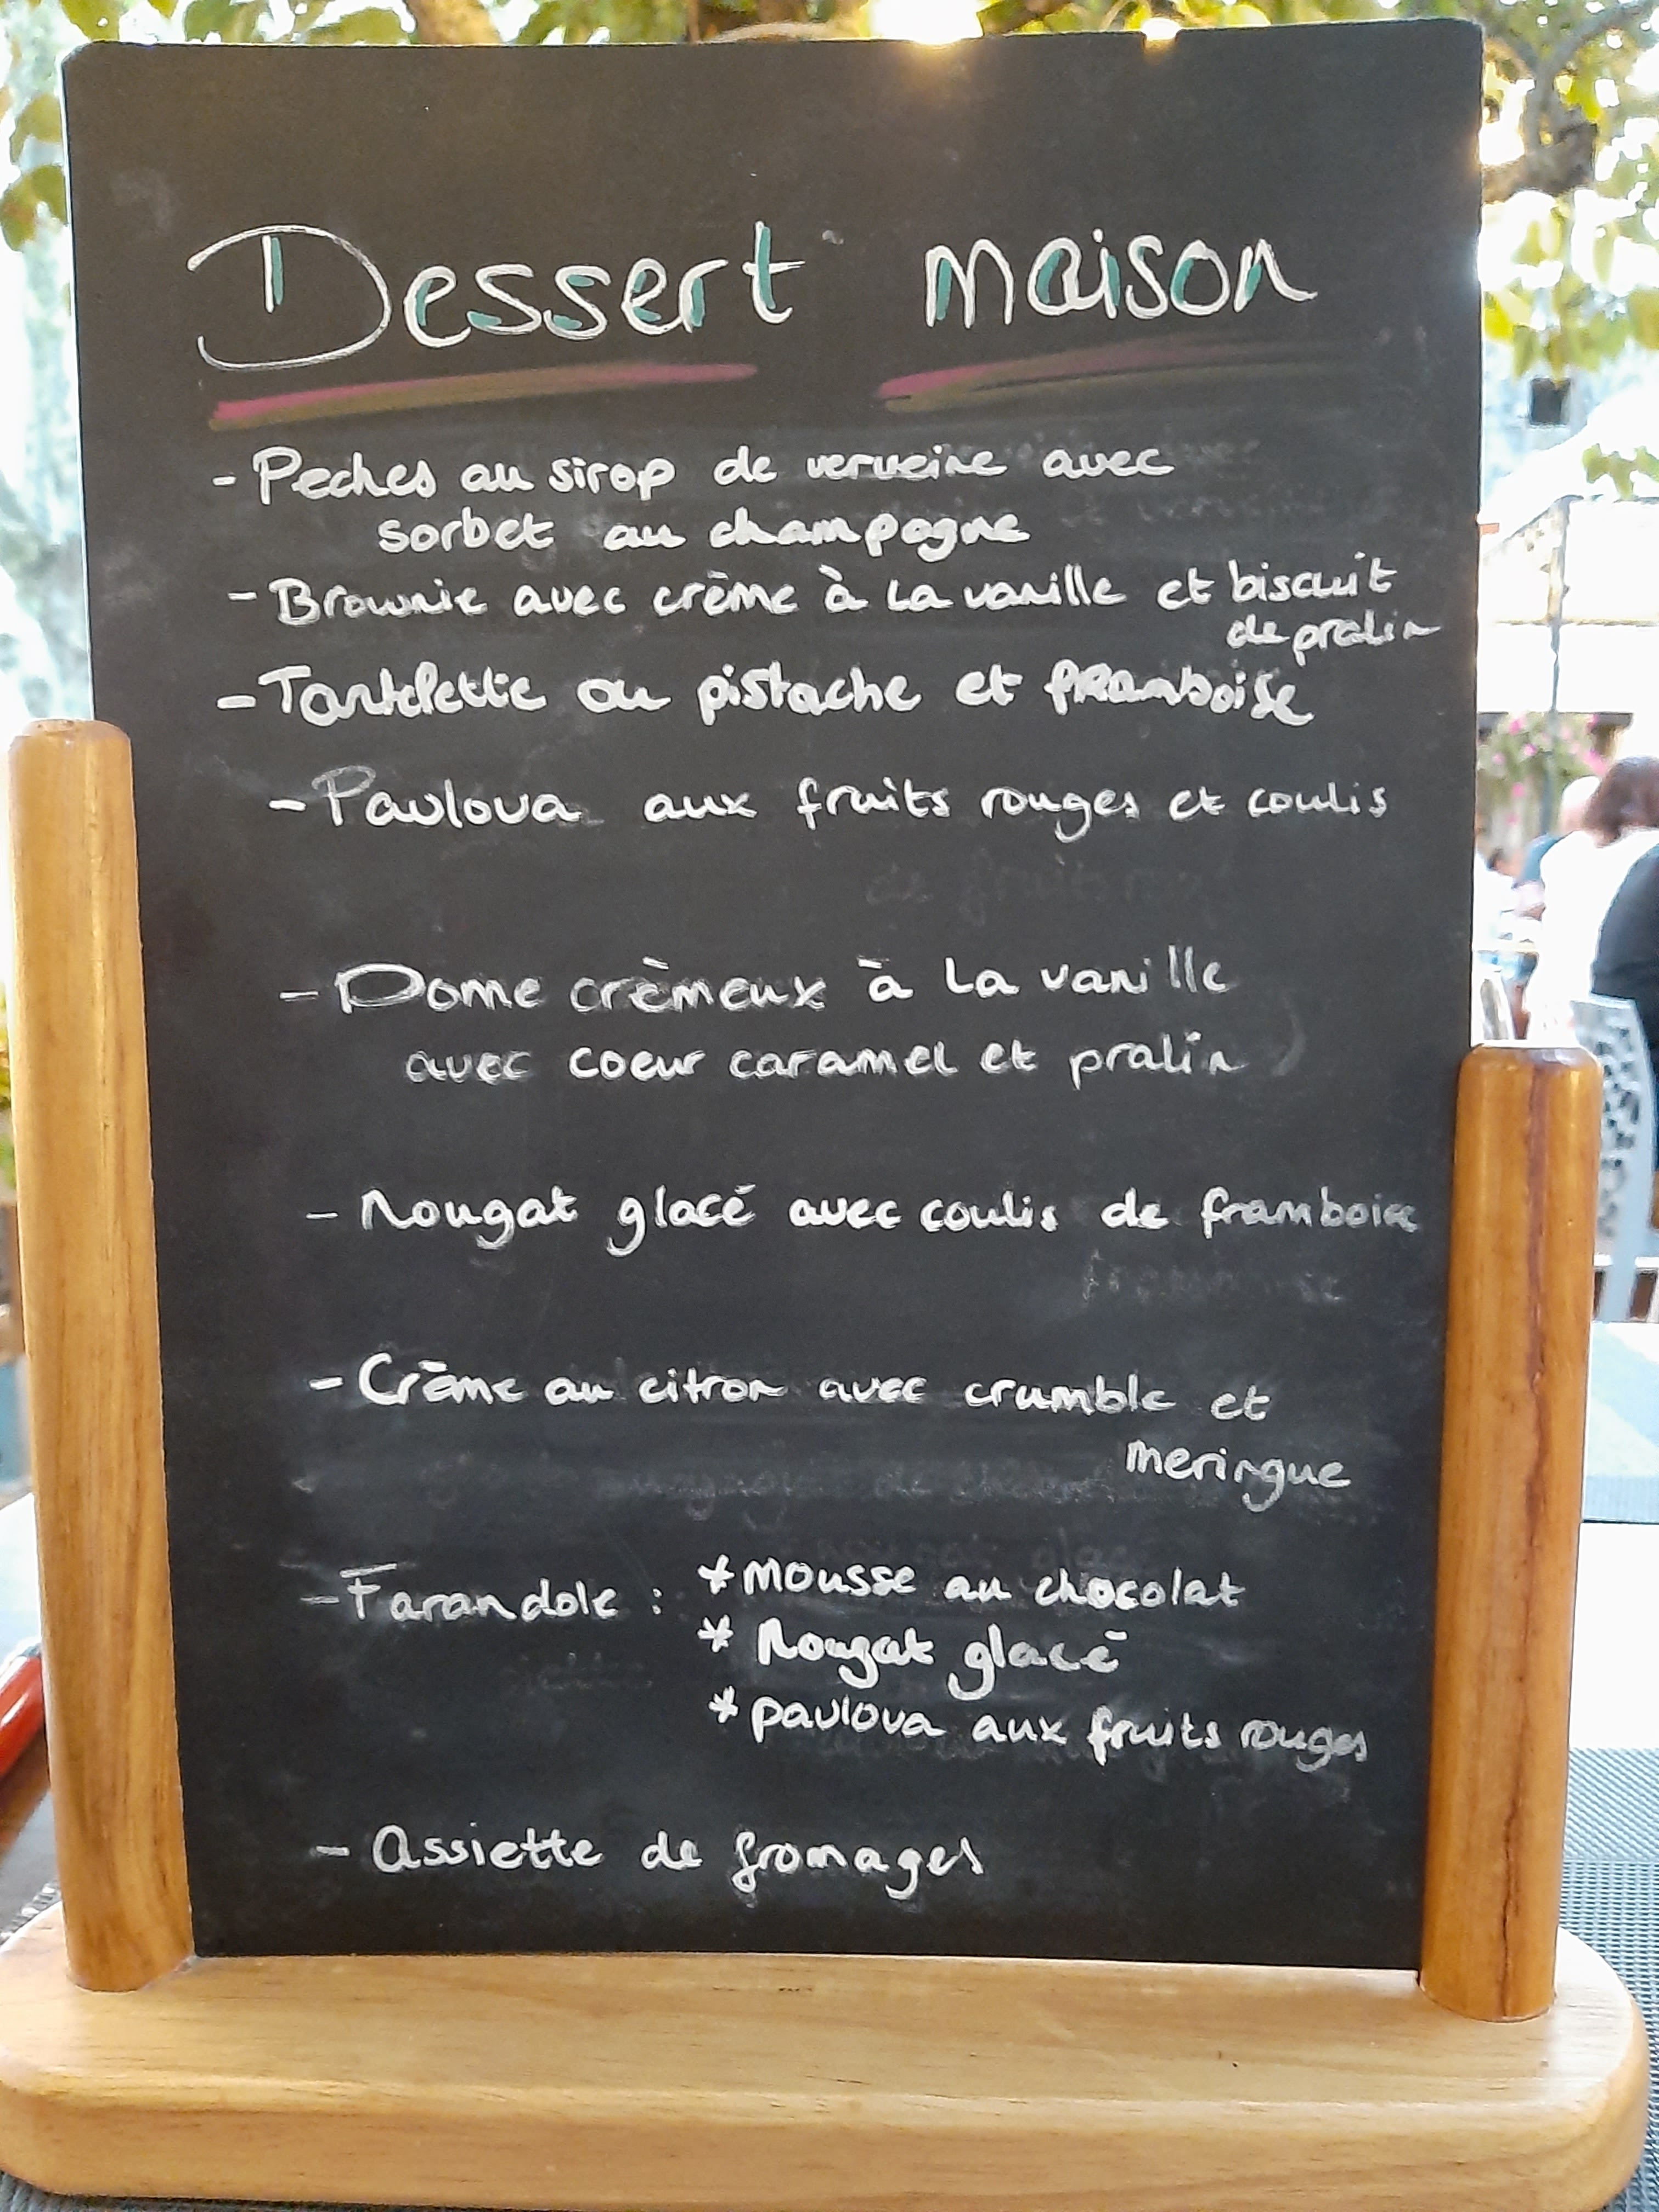 Dessert maison
- Peches au sirop de verveine avec
sorbet au champagne
- Brownie avec crème à La vanille et biscuit
de pralin
- Tartelette au pistache et framboise
- Pavlova aux fruits rouges et coulis
de fruits roug
- Dome crèmeux à La vanille
avec coeur caramel et pralin
- Nougat glacé avec coulis de framboise
framboise
- Crème au citron avec crumble et
meringue
- Farandole : * mousse au chocolat
* Nougat glacé
* pavlova aux fruits rouges
- Assiette de fromages